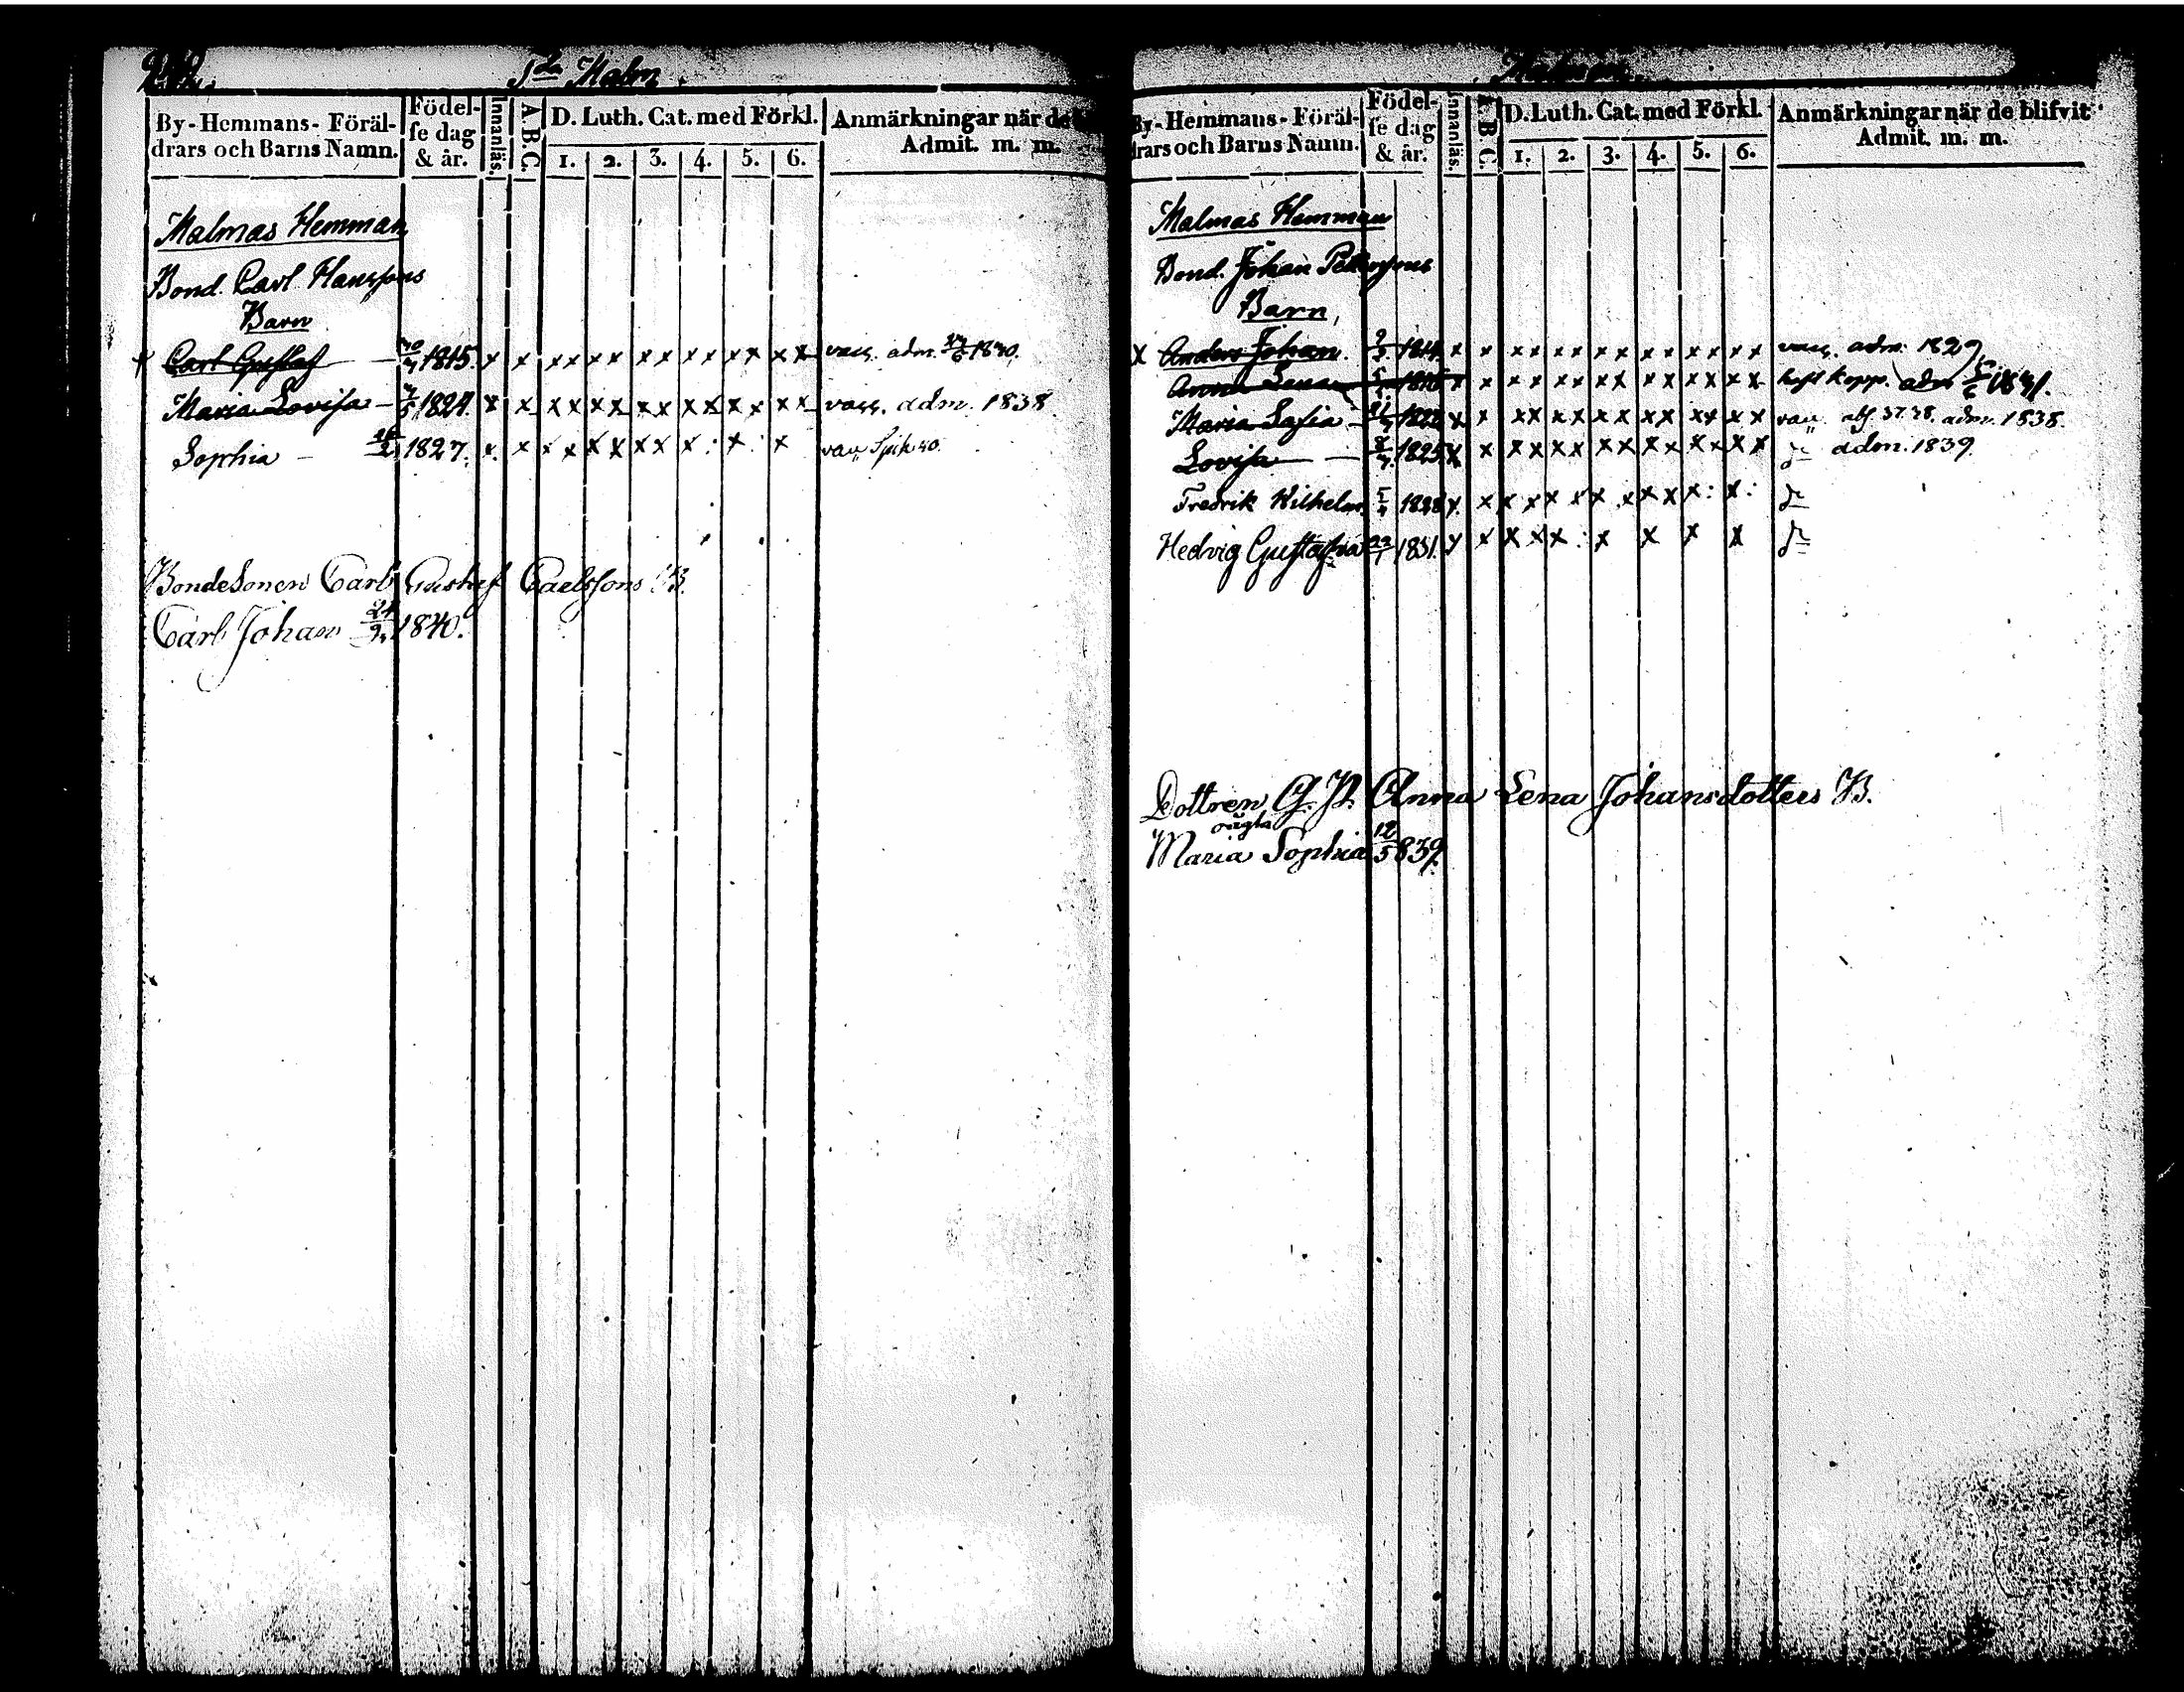 1sta Malm.
By-Hemmans-Föräl-
drars och Barns Namn.
Födel-
se dag
& år.
Innanläs.
A.B.C.
D. Luth. Cat. med Förkl.
1. 2. 3. 4. 5. 6.
Anmärkningar när de
Admit. m. m.
Malmas Hemman
Bond. Carl Hanssons
Barn
x Carl Gustaf — 1815. x x x x x x x x x x x x x x vacc. adm. 1830.
Maria Lovisa — 1824. x x x x x x x x x x x x x x vacc. adm. 1838
Sophia — 1827. x. x x x x x x x : x : x vac
BondeSonen Carl Gustaf Carlssons B.
Carl Johan 24/9 1840.
By-Hemmans-Föräl-
drars och Barns Namn.
Födel-
se dag
& år.
Innanläs.
A.B.C.
D. Luth. Cat. med Förkl.
1. 2. 3. 4. 5. 6.
Anmärkningar när de blifvit
Admit. m. m.
Malmas Hemman
Bond. Johan Petterssons
Barn,
x Anders Johan. 1814 x x x x x x x x x x x x x x vacc. adm. 1829
Anna Lena x x x x x x x x x x x x x x haft kopp. adm 1831.
Maria Sofia — 1822 x x x x x x x x x x x x x x vac abs. 37.38. adm. 1838.
Lovisa — 1825 x x x x x x x x x x x x x x d:o adm. 1839
Fredrik Wilhelm 1828 x. x x x x x x x x x x : x : d:o
Hedvig Gustafva 1831. x x x x x : x x x x d:o
Dottren G. P. Anna Lena Johansdotters B.
oägta
Maria Sophia 12/5 839.